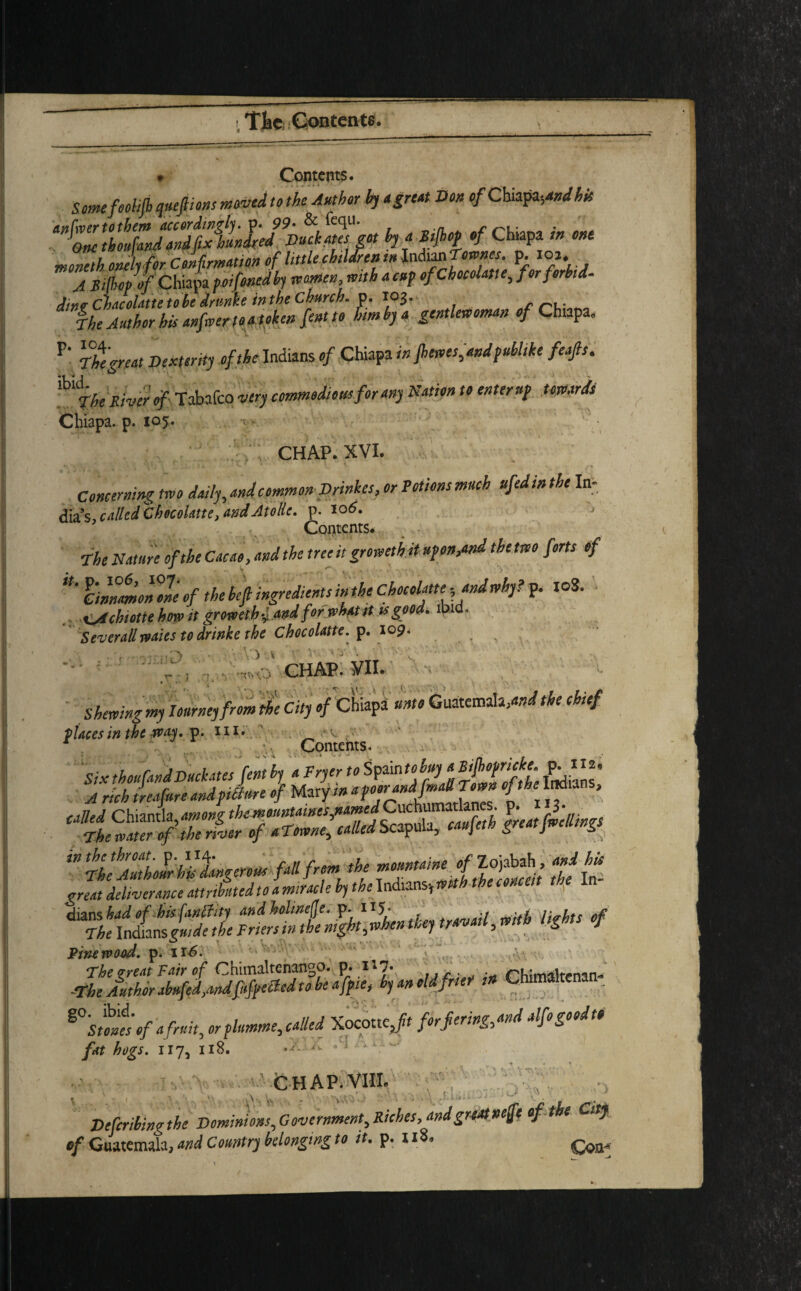 The Contents.
Contents.
Some foolish questions moved to the Author by a great Don of Chiapa, and his
answer to them accordingly. p. 99. & sequ.
One thousand and six hundred Duckates got by a Bishop of Chiapa in one
moneth onely for Confirmation of little children in Indian Townes. p. 102.
A Bishop of Chiapa poisoned by women, with a cup of Chocolatte, for forbid-
ding Chacolatte to be drunke in the Church. p. 103.
The Author his answer to a token sent to him by a gentlewoman of Chiapa.
p. 104.
The great Dexterity of the Indians of Chiapa in shewes, and publike feasts.
ibid.
The River of Tabasco very commodious for any Nation to enter up towards
Chiapa. p. 105.
CHAP. XVI.
Concerning two daily, and common Drinkes, or Potions much used in the In-
dia's, called Chocolatte, and Atolle. p. 106.
Contents.
The Nature of the Cacao, and the tree it groweth it upon, and the two sorts of
it. p. 106, 107.
Cinnamon one of the best ingredients in the Chocolatte, and why? p. 108.
Achiotte how it groweth, and for what it is good. ibid.
Severall waies to drinke the Chocolatte. p. 109.
CHAP. VII.
Shewing my Iourney from the City of Chiapa unto Guatemala, and the chief
places in the way. p. 111.
Contents.
Six thousand Duckates sent by a Fryer to Spain to buy a Bishopricke. p. 112.
A rich treasure and picture of Mary in a poor and small Town of the Indians,
called Chiantla, among the mountaines, named Cuchumatlanes. p. 113.
The water of the river of a Towne, called Scapula, causeth great swellings
in the throat. p. 114.
The Authour his dangerous fall from the mountaine of Zojabah, and his
great deliverance attributed to a miracle by the Indians, with the conceit the In-
dians had of his sanctity and holinesse. p. 115.
The Indians guide the Friers in the night, when they travail, with lights of
Pine wood. p. 116.
The great Fair of Chimaltenango. p. 117.
The Author abused, and suspected to be a spie, by an old frier in Chimaltenan-
go. ibid.
Stones of a fruit, or plumme, called Xocotte, fit for fiering, and also good to
fat hogs. 117, 118.
CHAP. VIII.
Describing the Dominions, Government, Riches, and greatnesse of the City
of Guatemala, and Country belonging to it. p. 118.
Con-